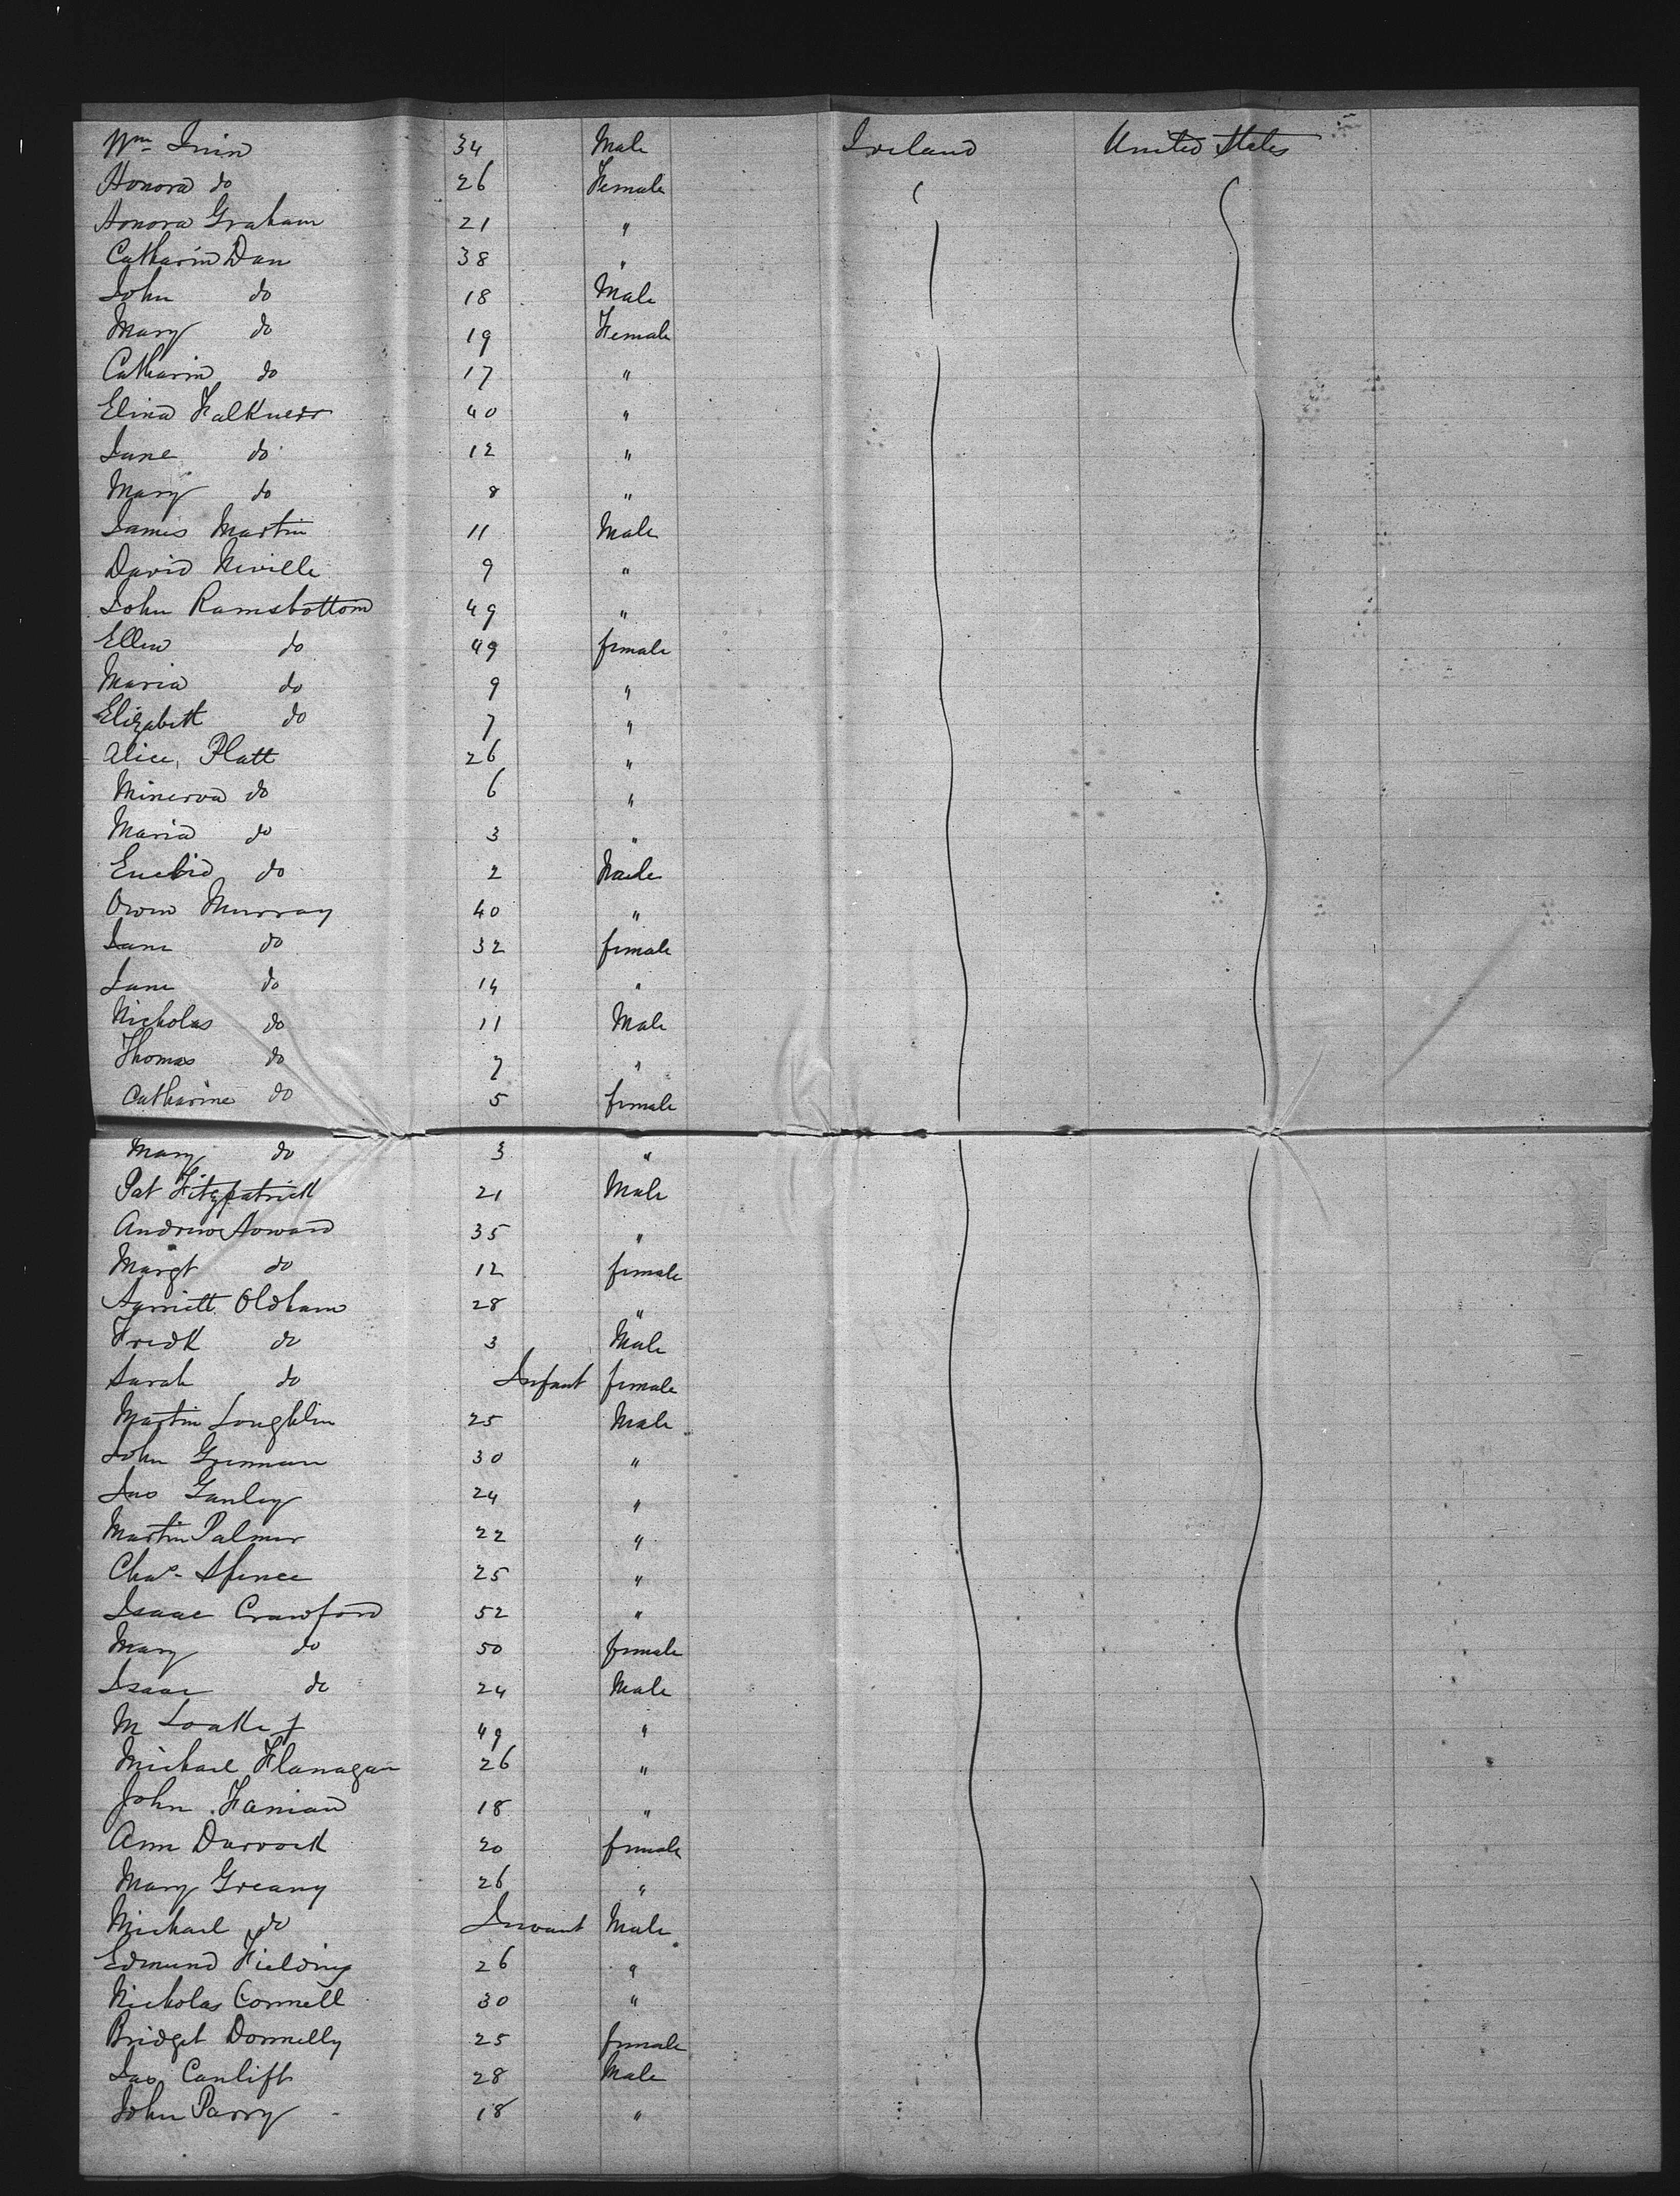 Wm Irvin 34 Male Ireland United States
Honora do 26 Female
Honora Graham 21 "
Catharin Dan 38 "
John do 18 Male
Mary do 19 Female
Catharin do 17 "
Elina Falkner 40 "
Jane do 12 "
Mary do 8 "
James Martin 11 Male
David Neville 9 "
John Ramsbottom 49 "
Ellen do 49 female
Maria do 9 "
Elizabeth do 7 "
Alice Platt 26 "
Minerva do 6 "
Maria do 3 "
do 2 Male
Owen Murray 40 "
Jane do 32 female
Jane do 14 "
Nicholas do 11 Male
Thomas do 7 "
Catharine do 5 female
Mary do 3 "
Pat Fitzpatrick 21 Male
Andrew Howard 35 "
Margt do 12 female
Harriett Oldham 28 "
Fredk do 3 Male
Sarah do Infant female
Martin Loughlin 25 Male
John 30 "
Jas Ganley 24 "
Martin Palmer 22 "
Chas Spence 25 "
Isaac Crawford 52 "
Mary do 50 female
Isaac do 24 Male
M 49 "
Michael Flanagan 26 "
John 18 "
Ann Durrock 20 female
Mary Greany 26 "
Michael do Invant Male
Edmund Fielding 26 "
Nicholas Connell 30 "
Bridget Donnelly 25 female
Jas Canliff 28 Male
John Parry 18 "